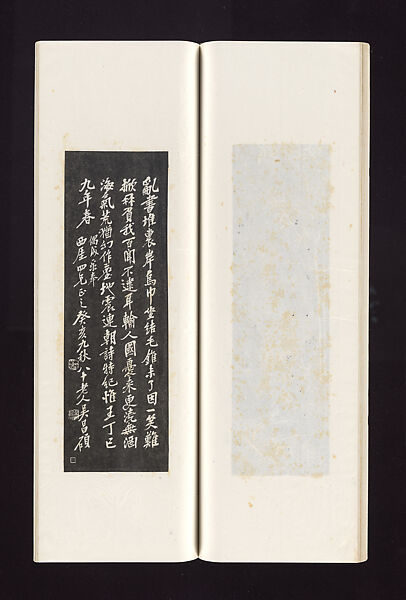 亂書堆裏岸烏巾坐結毛錐未了因一笑難
掀髯負我百聞不逮耳輪人國憂來更澆無酒
海氣荒猶幻作地震連朝詩特紀惟王丁巳
九年春
偶成录奉
西厓四兄正之癸亥九秋八十老人吳昌碩